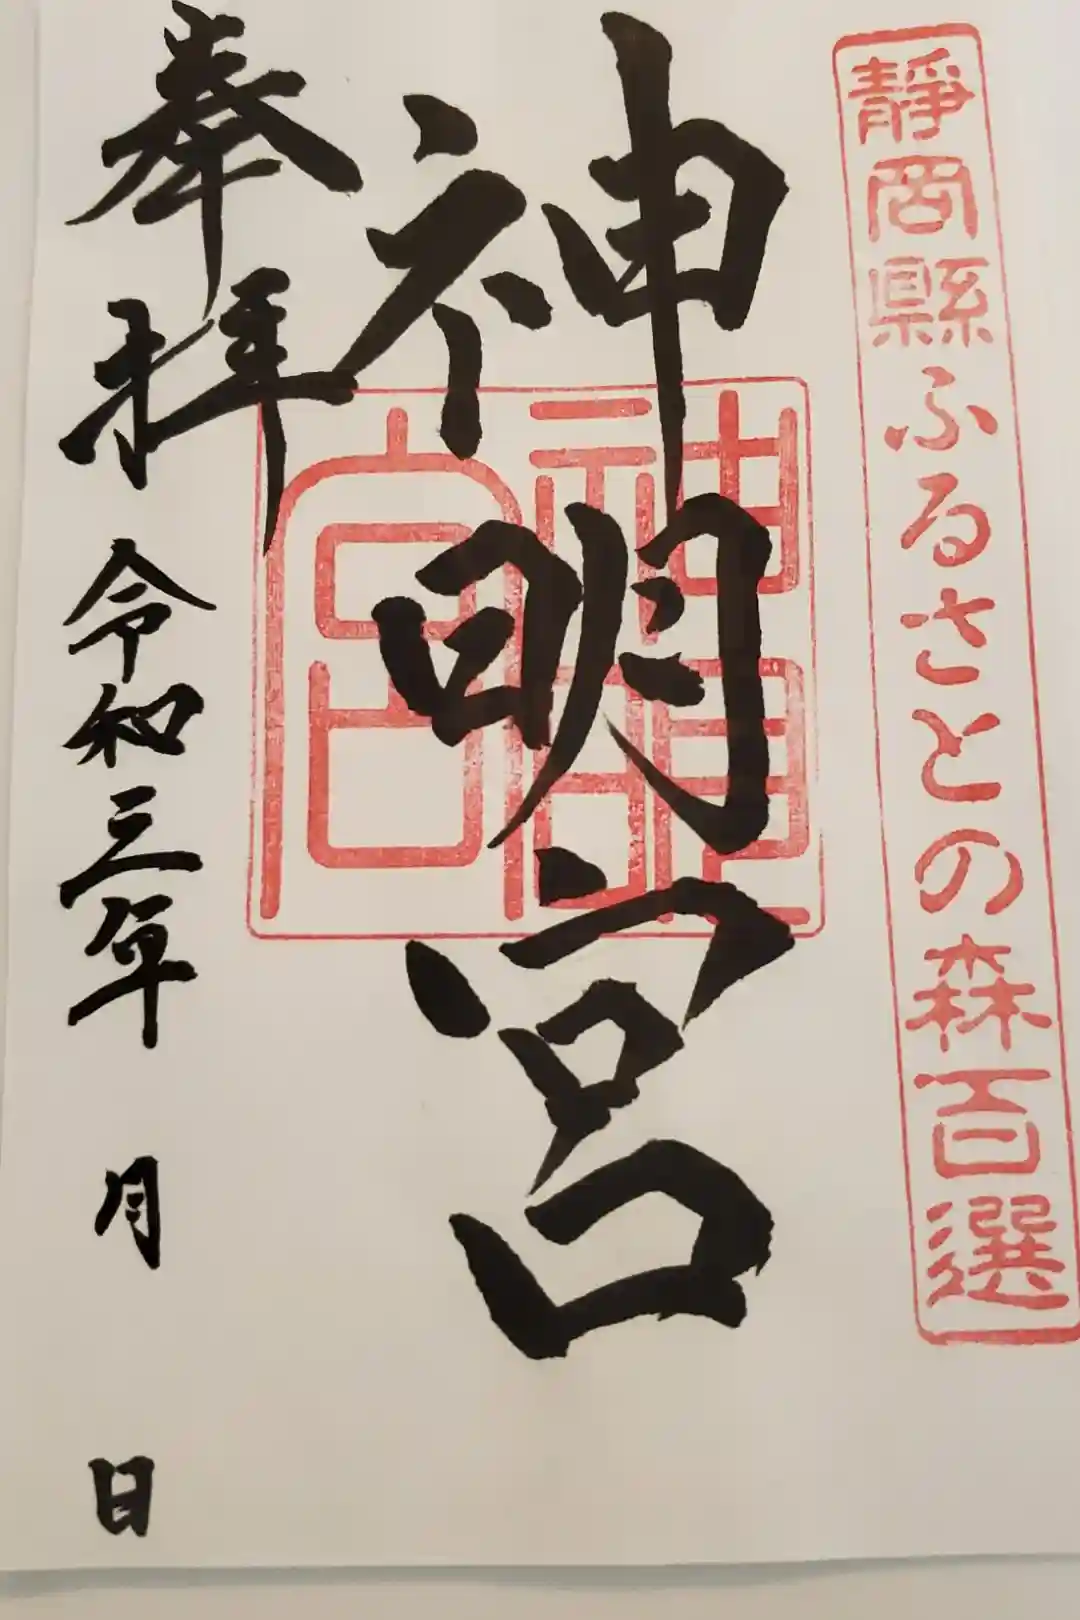 靜岡縣ふるさとの森百選
神明宮
神明宮
奉拜
令和三年 月 日